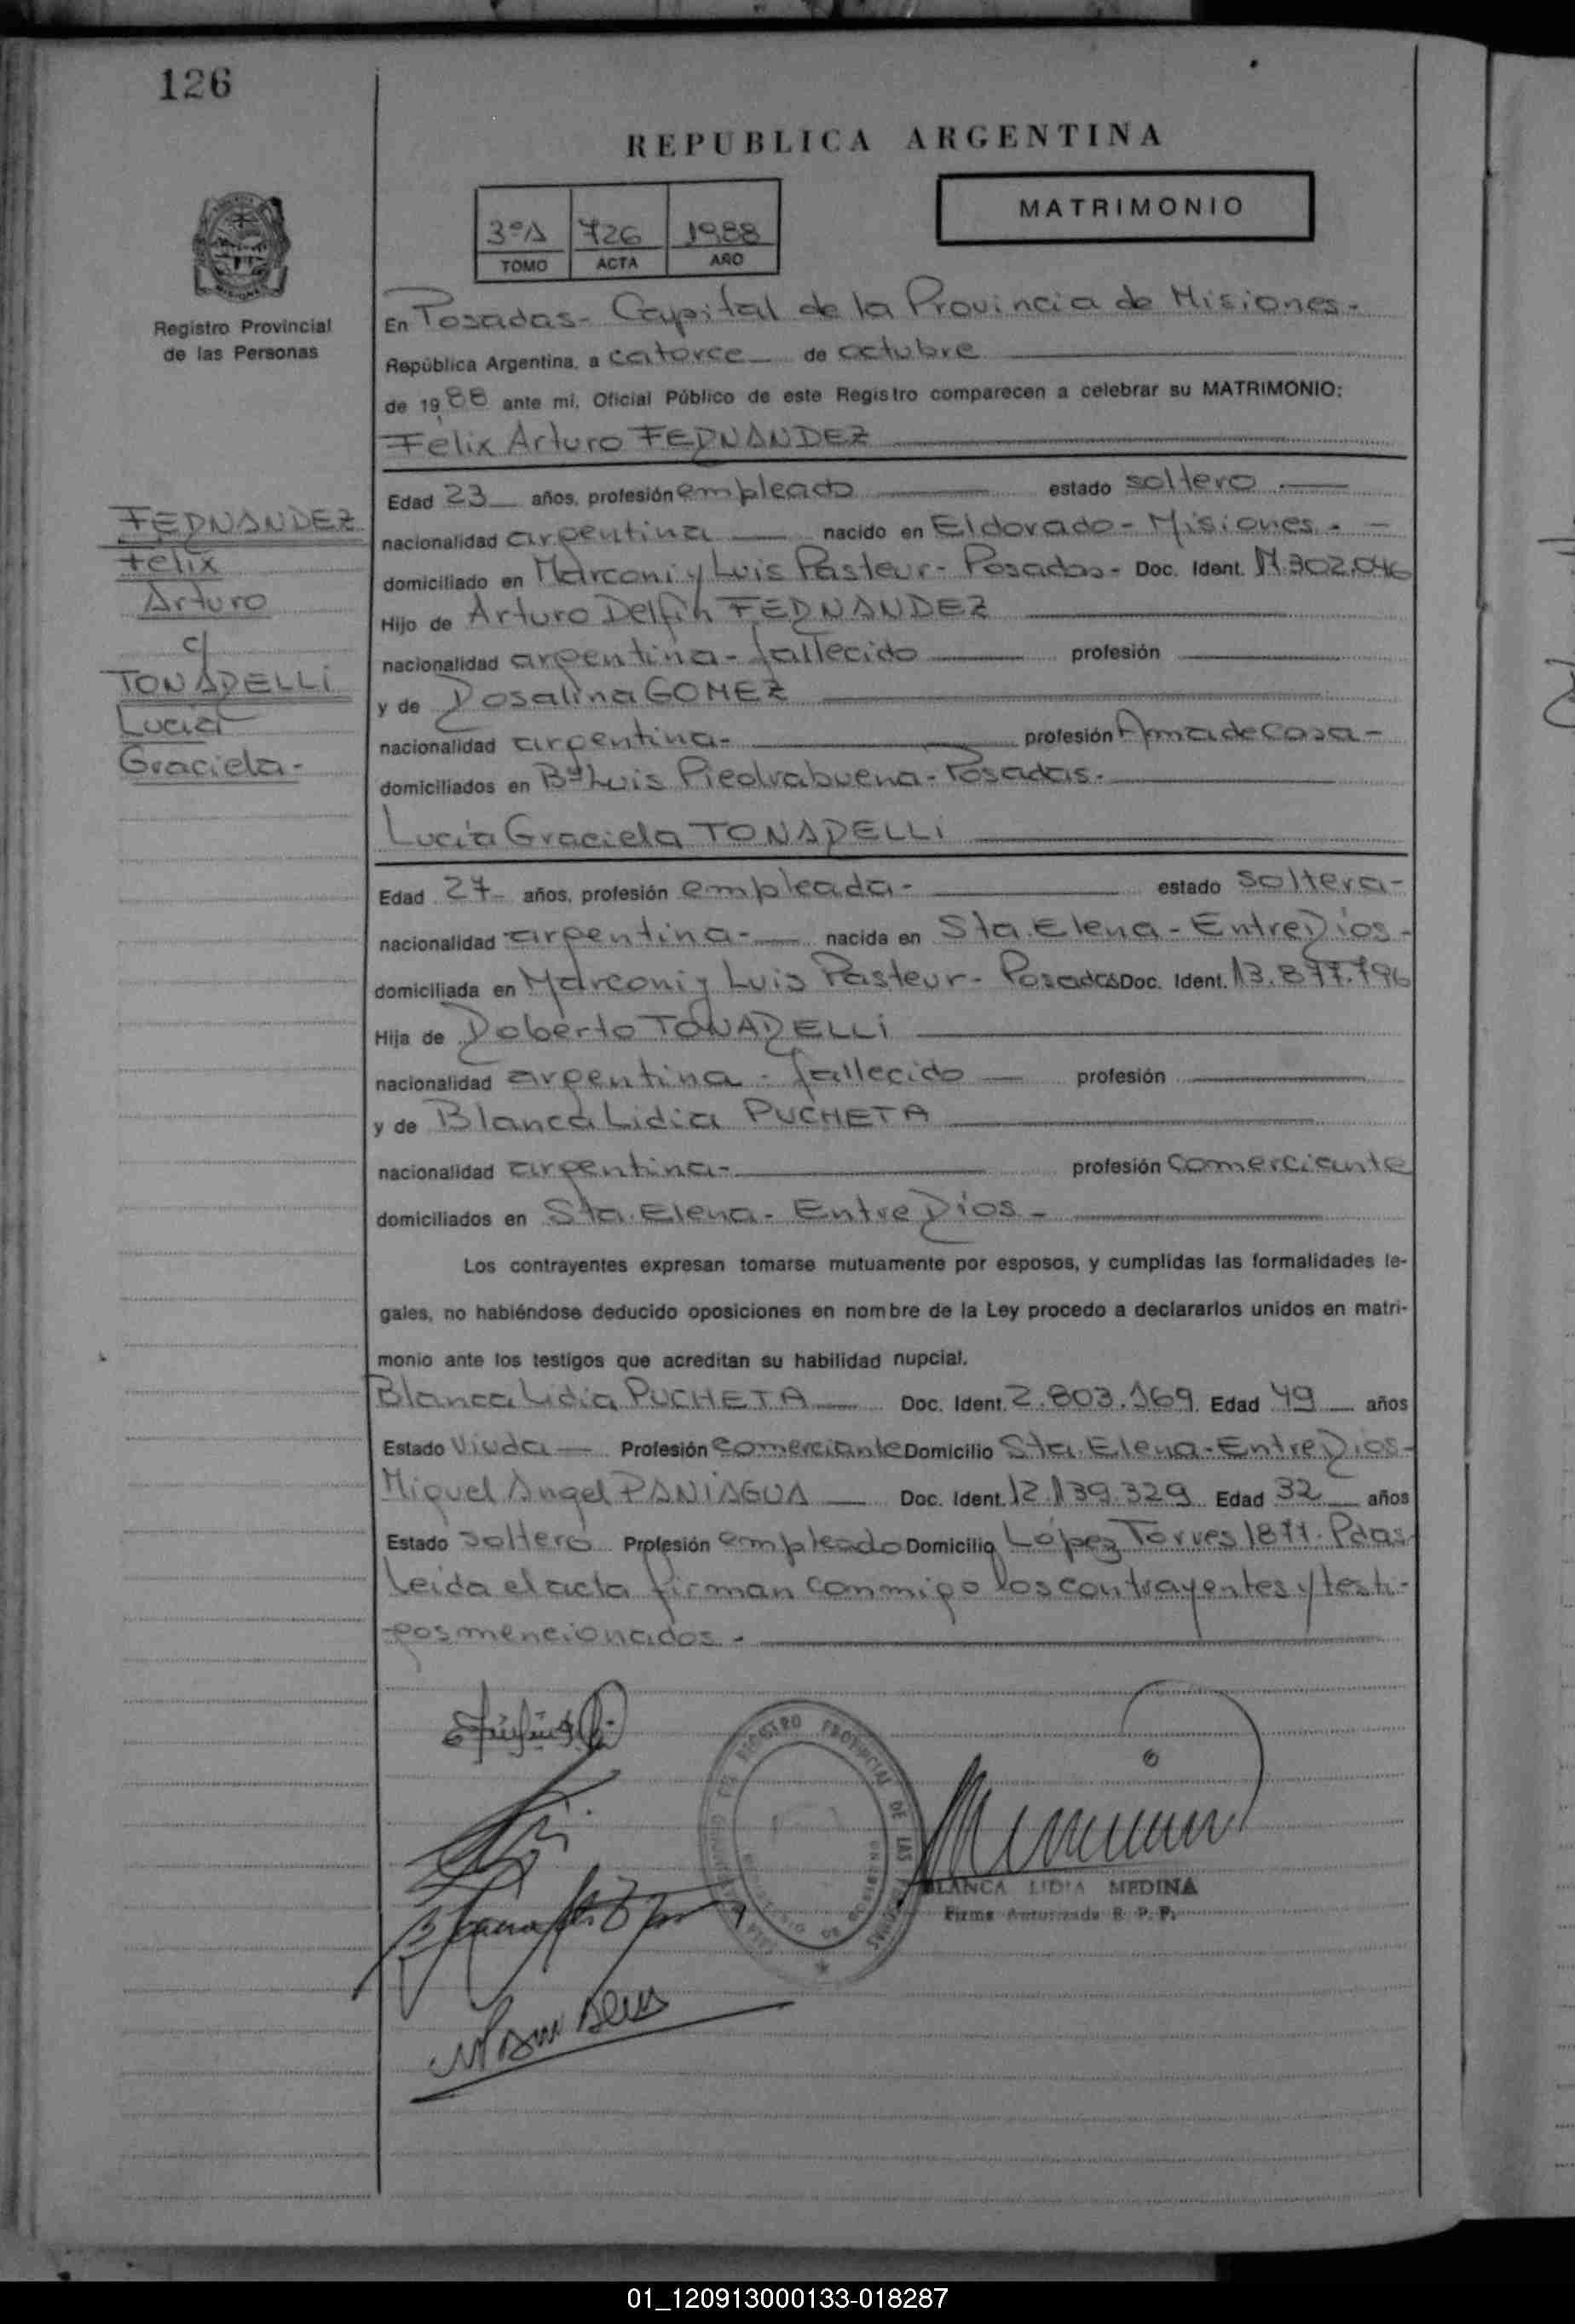 126
REPUBLICA ARGENTINA
MATRIMONIO
3ºA 726 1988
TOMO ACTA AÑO
Registro Provincial
de las Personas
En Posadas- Capital de la Provincia de Misiones-
República Argentina, a catorce de octubre
de 1988 ante mí, Oficial Público de este Registro comparecen a celebrar su MATRIMONIO:
Félix Arturo FERNANDEZ
FERNANDEZ
Félix
Arturo
c/
TONARELLI
Lucía
Graciela-
Edad 23 años, profesión empleado estado soltero
nacionalidad argentina nacido en Eldorado- Misiones.-
domiciliado en Marconi y Luis Pasteur- Posadas- Doc. Ident. 17.302.046
Hijo de Arturo Delfín FERNANDEZ
nacionalidad argentina- fallecido profesión
y de Rosalina GOMEZ
nacionalidad argentina- profesión Ama de Casa-
domiciliados en Bº Luis Piedrabuena- Posadas.
Lucía Graciela TONARELLI
Edad 27 años, profesión empleada- estado soltera-
nacionalidad argentina- nacida en Sta. Elena- Entre Ríos-
domiciliada en Marconi y Luis Pasteur- Posadas Doc. Ident. 13.877.796
Hija de Roberto TONARELLI
nacionalidad argentina- fallecido profesión
y de Blanca Lidia PUCHETA
nacionalidad argentina- profesión comerciante
domiciliados en Sta. Elena- Entre Ríos-
Los contrayentes expresan tomarse mutuamente por esposos, y cumplidas las formalidades le-
gales, no habiéndose deducido oposiciones en nombre de la Ley procedo a declararlos unidos en matri-
monio ante los testigos que acreditan su habilidad nupcial.
Blanca Lidia PUCHETA Doc. Ident. 2.803.169 Edad 49 años
Estado Viuda Profesión comerciante Domicilio Sta. Elena- Entre Ríos-
Miguel Angel PANIAGUA Doc. Ident. 12.139.329 Edad 32 años
Estado soltero Profesión empleado Domicilio López Torres 1877- Pdas
Leida el acta firman conmigo los contrayentes y testi-
gos mencionados.-
REGISTRO PROVINCIAL DE LAS PERSONAS
BLANCA LIDIA MEDINA
Firma Autorizada R. P. P.
01_120913000133-018287